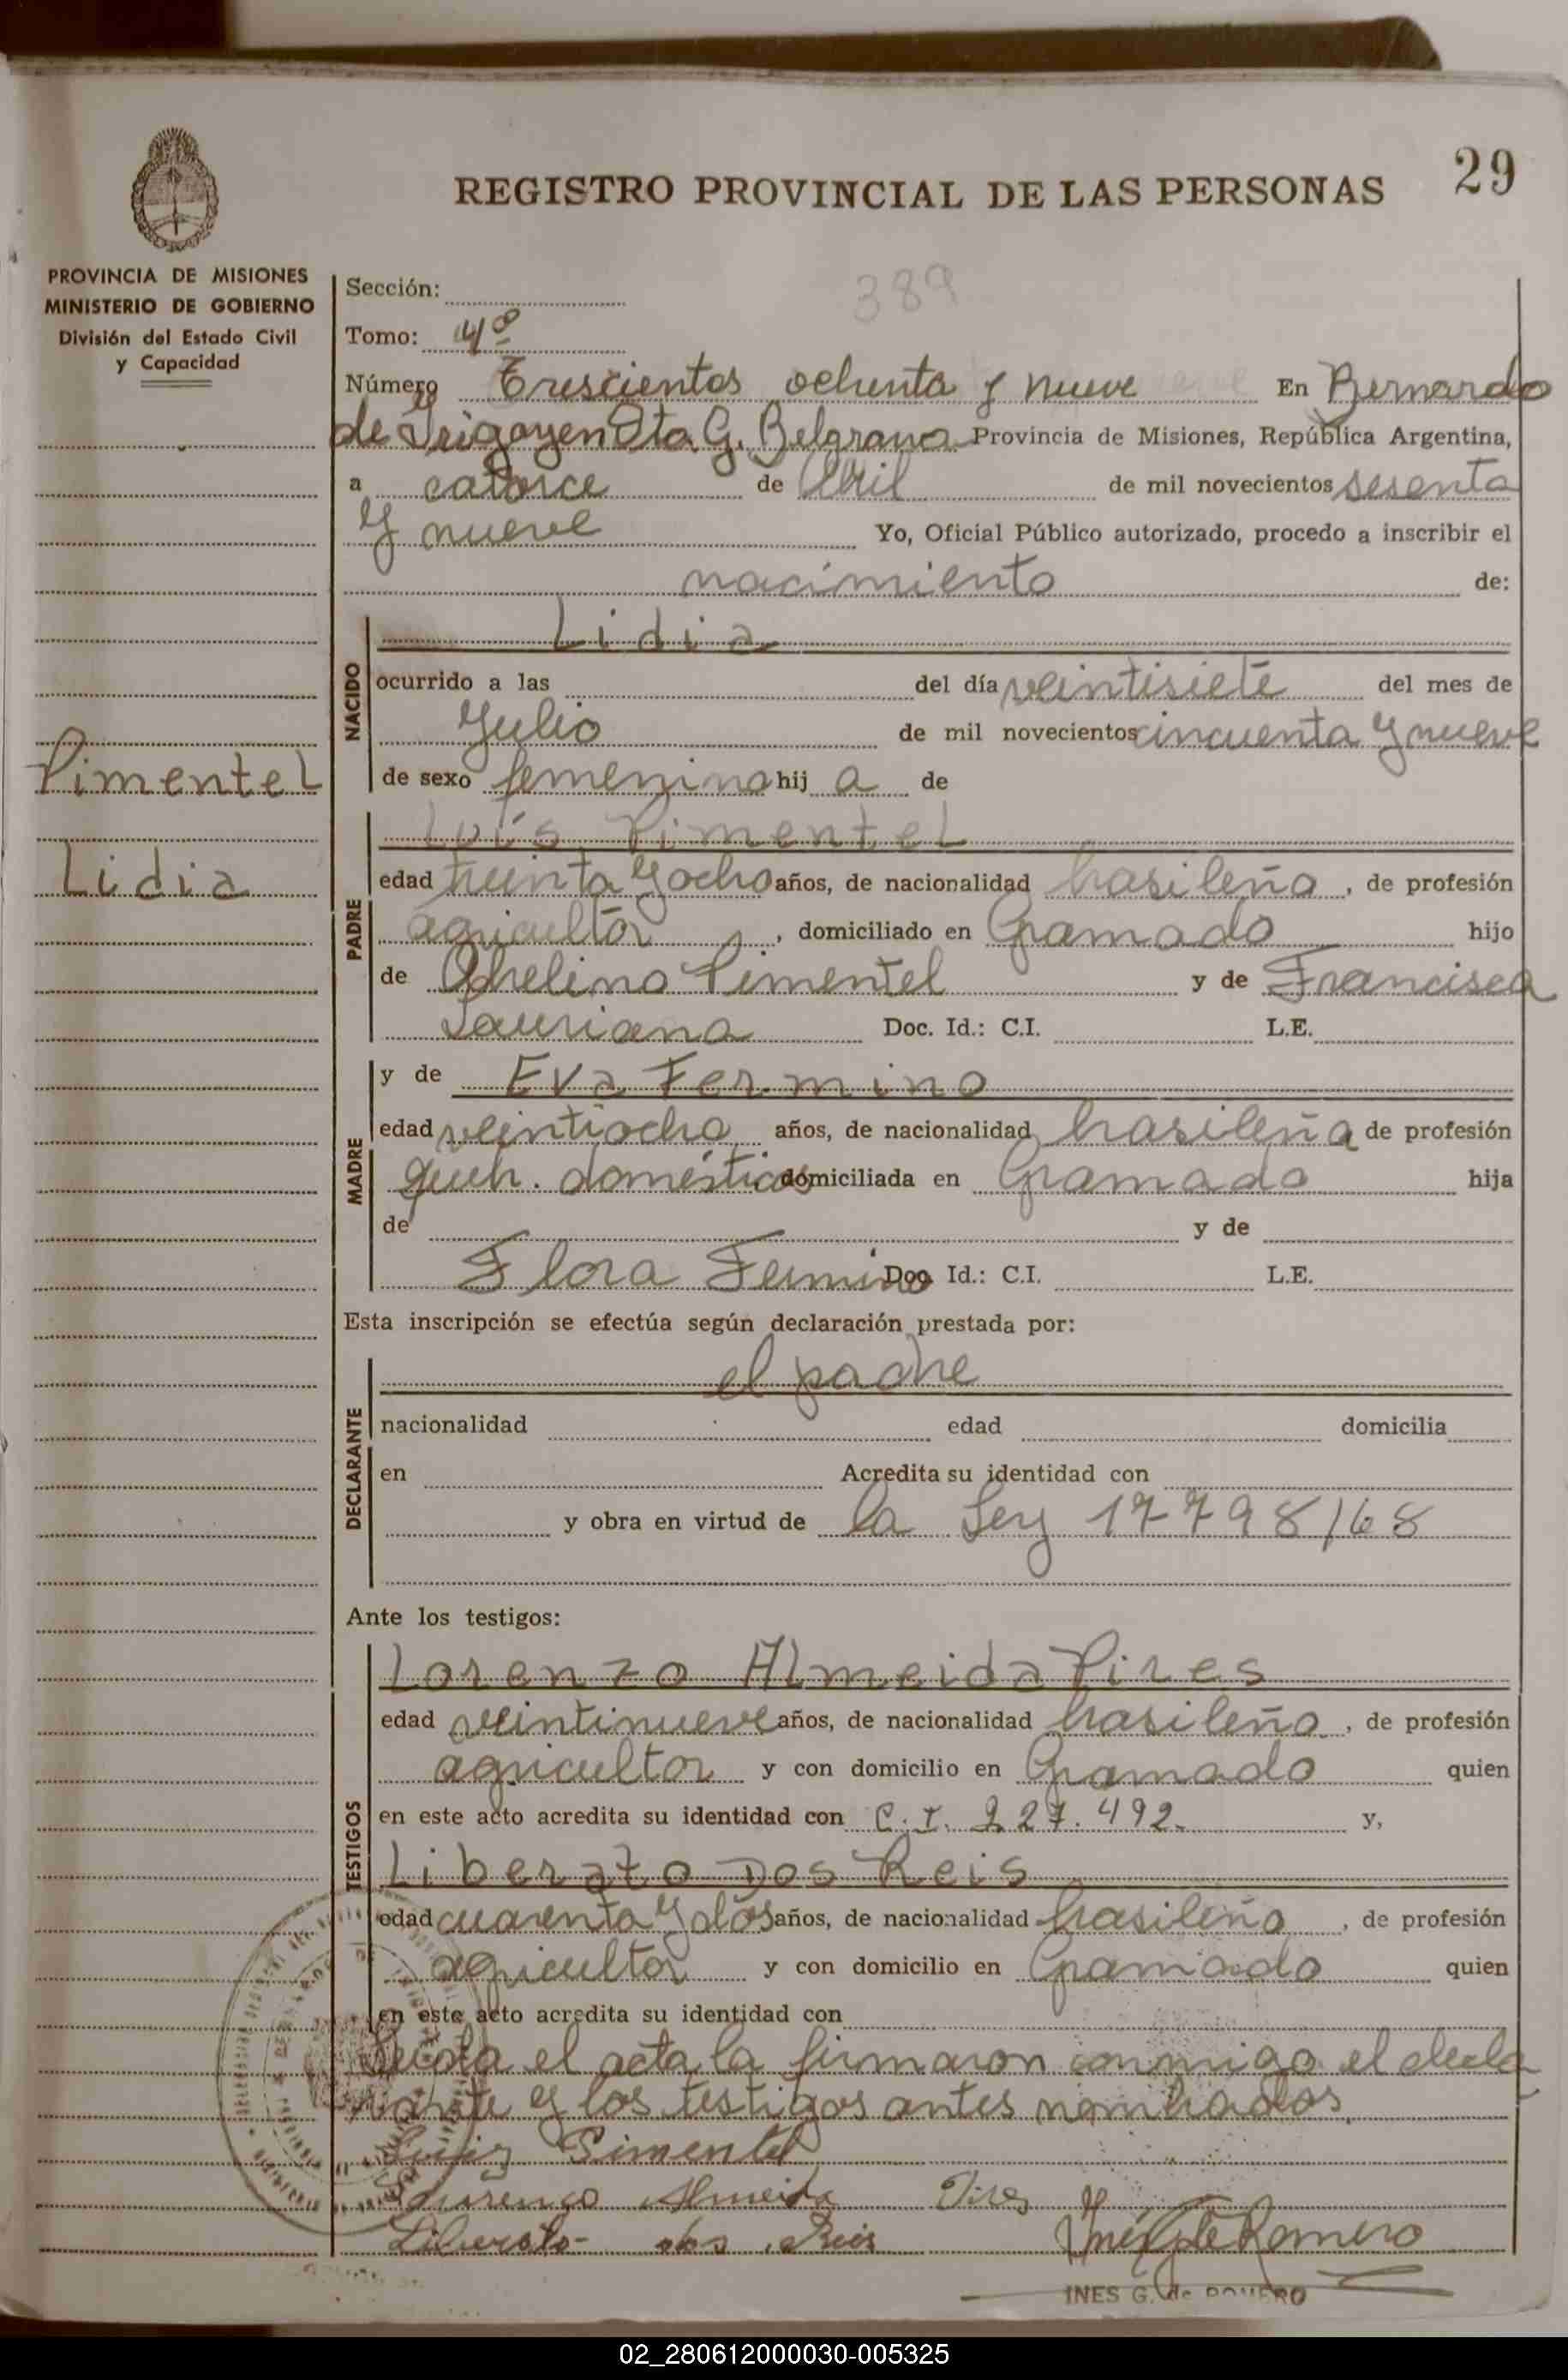 29
REGISTRO PROVINCIAL DE LAS PERSONAS
PROVINCIA DE MISIONES
MINISTERIO DE GOBIERNO
División del Estado Civil
y Capacidad
389
Sección:
Tomo: 4º
Número Trescientos ochenta y nueve En Bernardo
de Irigoyen Dto G. Belgrano Provincia de Misiones, República Argentina,
a catorce de Abril de mil novecientos sesenta
y nueve Yo, Oficial Público autorizado, procedo a inscribir el
nacimiento de:
Pimentel
Lidia
NACIDO
Lidia
ocurrido a las del día veintisiete del mes de
Julio de mil novecientos cincuenta y nueve
de sexo femenino hij a de
PADRE
Luis Pimentel
edad treinta y ocho años, de nacionalidad brasileño, de profesión
agricultor, domiciliado en Gramado hijo
de Pimentel y de Francisca
Lauriana Doc. Id.: C.I. L.E.
MADRE
y de Eva Fermino
edad veintiocho años, de nacionalidad brasileña de profesión
queh. domésticos domiciliada en Gramado hija
de y de
Flora Fermino Doc. Id.: C.I. L.E.
Esta inscripción se efectúa según declaración prestada por:
DECLARANTE
el padre
nacionalidad edad domicilia
en Acredita su identidad con
y obra en virtud de la Ley 17798/68
Ante los testigos:
TESTIGOS
Lorenzo Almeida Pires
edad veintinueve años, de nacionalidad brasileño, de profesión
agricultor y con domicilio en Gramado quien
en este acto acredita su identidad con C.I. 227.492. y,
Liberato Dos Reis
edad cuarenta y dos años, de nacionalidad brasileño, de profesión
agricultor y con domicilio en Gramado quien
en este acto acredita su identidad con
Leída el acta la firmaron conmigo el decla
rante y los testigos antes nombrados.
Luiz Pimentel
Lourenço Almeida Pires
Liberato dos Reis Inés G de Romero
INES G. de ROMERO
02_280612000030-005325